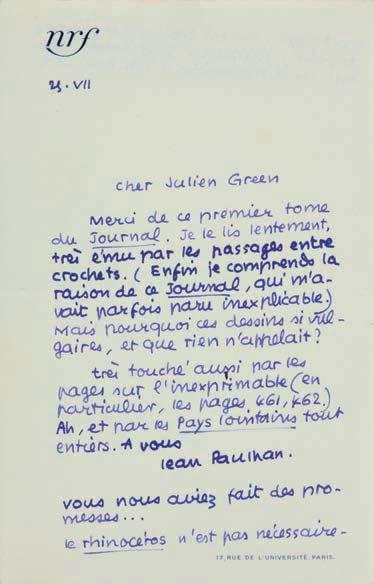 nrf
25.VII
Cher Julien Green
Merci de ce premier tome
du Journal. Je le lis lentement,
très ému par les passages entre
crochets. (Enfin je comprends la
raison de ce Journal, qui m'a-
vait parfois paru inexplicable.)
Mais pourquoi ces dessins si vul-
gaires, et que rien n'appelait?
très touché aussi par les
pages sur l'inexprimable (en
particulier, les pages 461, 462.)
Ah, et par les Pays lointains tout
entiers. A vous
Jean Paulhan.
vous nous aviez fait des pro-
messes...
le rhinocéros n'est pas nécessaire-
17, RUE DE L'UNIVERSITÉ, PARIS.